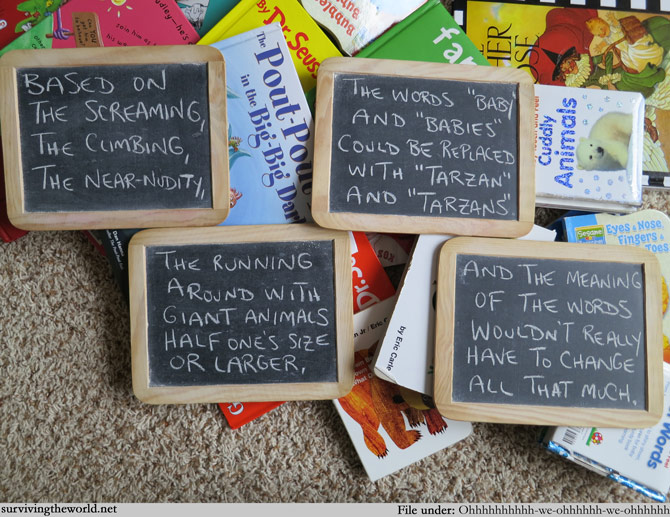 BASED ON
THE SCREAMING,
THE CLIMBING,
THE NEAR-NUDITY,
THE RUNNING
AROUND WITH
GIANT ANIMALS
HALF ONE'S SIZE
OR LARGER,
THE WORDS "BABY
AND "BABIES"
COULD BE REPLACED
WITH "TARZAN"
AND "TARZANS
AND THE MEANING
OF THE WORDS
WOULDN'T REALLY
HAVE TO CHANGE
ALL THAT MUCH.
By Dr. Seuss
The
Pout-Pout
in the
Big-Big Dark
Cuddly
Animals
Sesame
Eyes & Nose,
Fingers &
Toes
by Eric Carle
Words
survivingtheworld.net
File under: Ohhhhhhhhhh-we-ohhhhhh-we-ohhhhhh